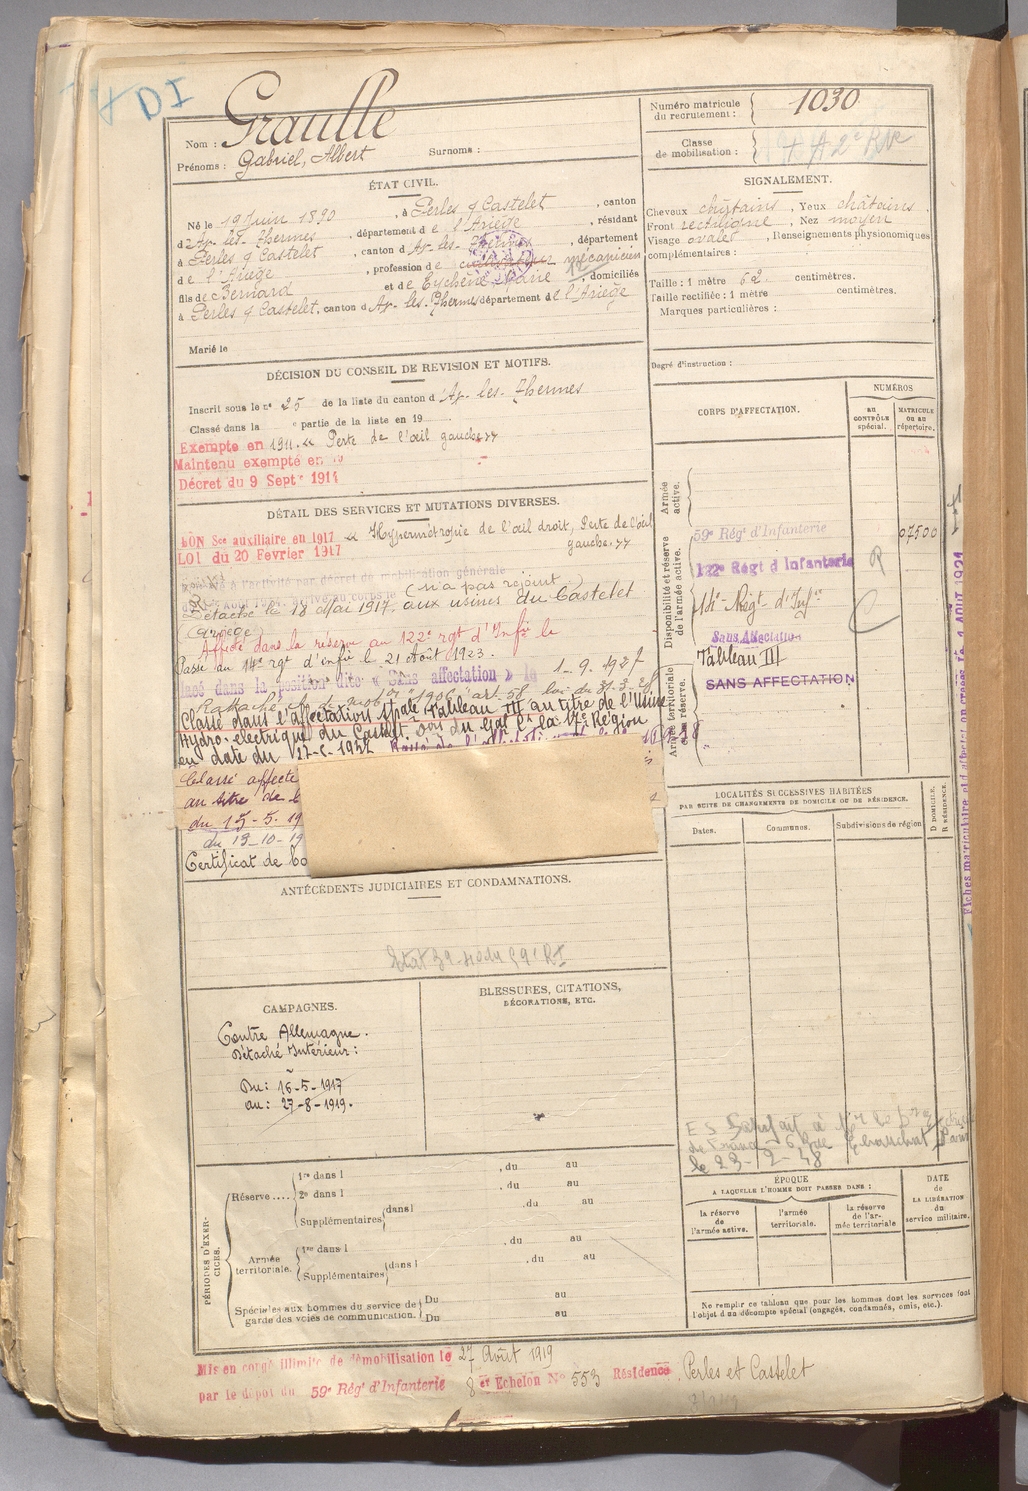 DI
Nom : Graulle
Prénoms : Gabriel, Albert Surnoms :
Numéro matricule du recrutement : 1030
Classe de mobilisation :
ÉTAT CIVIL.
Né le 19 Juin 1890, à Perles & Castelet, canton
d'Ax-les-Thermes, département de l'Ariège, résidant
à Perles & Castelet, canton d'Ax-les-Thermes, département
de l'Ariège, profession de mécanicien
fils de Bernard et de Eychène Marie, domiciliés
à Perles & Castelet, canton d'Ax-les-Thermes département de l'Ariège
Marié le
SIGNALEMENT.
Cheveux châtains, Yeux châtains.
Front rectiligne, Nez moyen
Visage ovale, Renseignements physionomiques
complémentaires :
Taille : 1 mètre 62 centimètres.
Taille rectifiée : 1 mètre centimètres.
Marques particulières :
Degré d'instruction :
DÉCISION DU CONSEIL DE REVISION ET MOTIFS.
Inscrit sous le n° 25 de la liste du canton d'Ax-les-Thermes
Classé dans la e partie de la liste en 19
Exempté en 1911. « Perte de l'œil gauche »
Maintenu exempté en
Décret du 9 Septre 1914
DÉTAIL DES SERVICES ET MUTATIONS DIVERSES.
BON Sce auxiliaire en 1917 « Hypermétropie de l'œil droit, Perte de l'œil
LOI du 20 Février 1917 gauche. »
à l'activité par décret de mobilisation générale
(n'a pas rejoint)
Détaché le 18 Mai 1917. aux usines du Castelet
(Ariège)
Affecté dans la réserve au 122e rgt d'Infie le
Passé au 14e rgt d'infie le 21 Août 1923.
lacé dans la position dite « Sans affectation » le 1-9-1927
Classé dans l'affectation spale Tableau III au titre de l'Usine
Hydro-électrique du Castelet. Don du Gal Ct la 17e Région
en date du
Classé affecté
au titre de
du 15-5-19
du 19-10-19
Certificat de
CORPS D'AFFECTATION.
NUMÉROS
au CONTRÔLE spécial.
MATRICULE ou au répertoire.
Armée active.
Disponibilité et réserve de l'armée active.
59e Régt d'Infanterie 07500
122e Régt d'Infanterie
14e Régt d'Infie
Sans Affectation
Armée territoriale et sa réserve.
Tableau III
SANS AFFECTATION
LOCALITÉS SUCCESSIVES HABITÉES
PAR SUITE DE CHANGEMENTS DE DOMICILE OU DE RÉSIDENCE.
Dates. Communes. Subdivisions de région
D DOMICILE. R RÉSIDENCE.
ANTÉCÉDENTS JUDICIAIRES ET CONDAMNATIONS.
CAMPAGNES.
Contre Allemagne.
Détaché Intérieur :
Du : 16-5-1917
au : 27-8-1919.
BLESSURES, CITATIONS,
DÉCORATIONS, ETC.
le 23-2-48
PÉRIODES D'EXERCICES.
Réserve....
1re dans l , du au
2e dans l , du au
Supplémentaires dans l , du au
Armée territoriale.
1re dans l , du au
Supplémentaires dans l , du au
Spéciales aux hommes du service de garde des voies de communication.
Du au
Du au
ÉPOQUE
A LAQUELLE L'HOMME DOIT PASSER DANS :
la réserve de l'armée active.
l'armée territoriale.
la réserve de l'armée territoriale
DATE de LA LIBÉRATION du service militaire.
Ne remplir ce tableau que pour les hommes dont les services font
l'objet d'un décompte spécial (engagés, condamnés, omis, etc.).
Mis en congé illimité de démobilisation le 27 Août 1919
par le dépôt du 59e Régt d'Infanterie 8 er Echelon No 553 Résidence : Perles et Castelet